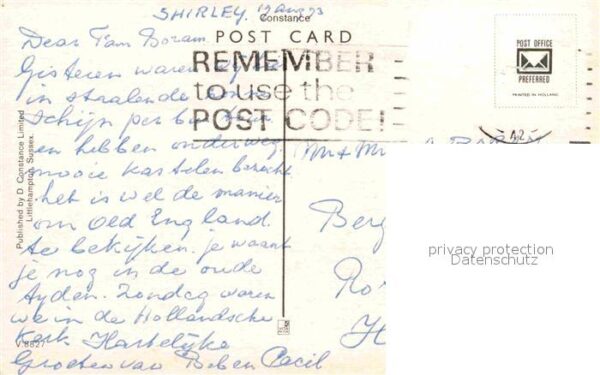 SHIRLEY, 12 aug 73
Constance
POST CARD
Dear Fam Boram
Gisteren waren
in stralende zonne
schijn per
en hebben onderweg
mooie kastelen bezocht
het is wel de manier
om Old England
te bekijken. je waant
je nog in de oude
tyden. Zondag waren
we in de Hollandsche
kerk. Hartelijke
Groeten van Beb en Cecil
REMEMBER
to use the
POST CODE!
POST OFFICE
PREFERRED
PRINTED IN HOLLAND
Mr + Mr
Berg
Ro
H
Published by D Constance Limited
Littlehampton, Sussex.
V.8827
privacy protection
Datenschutz